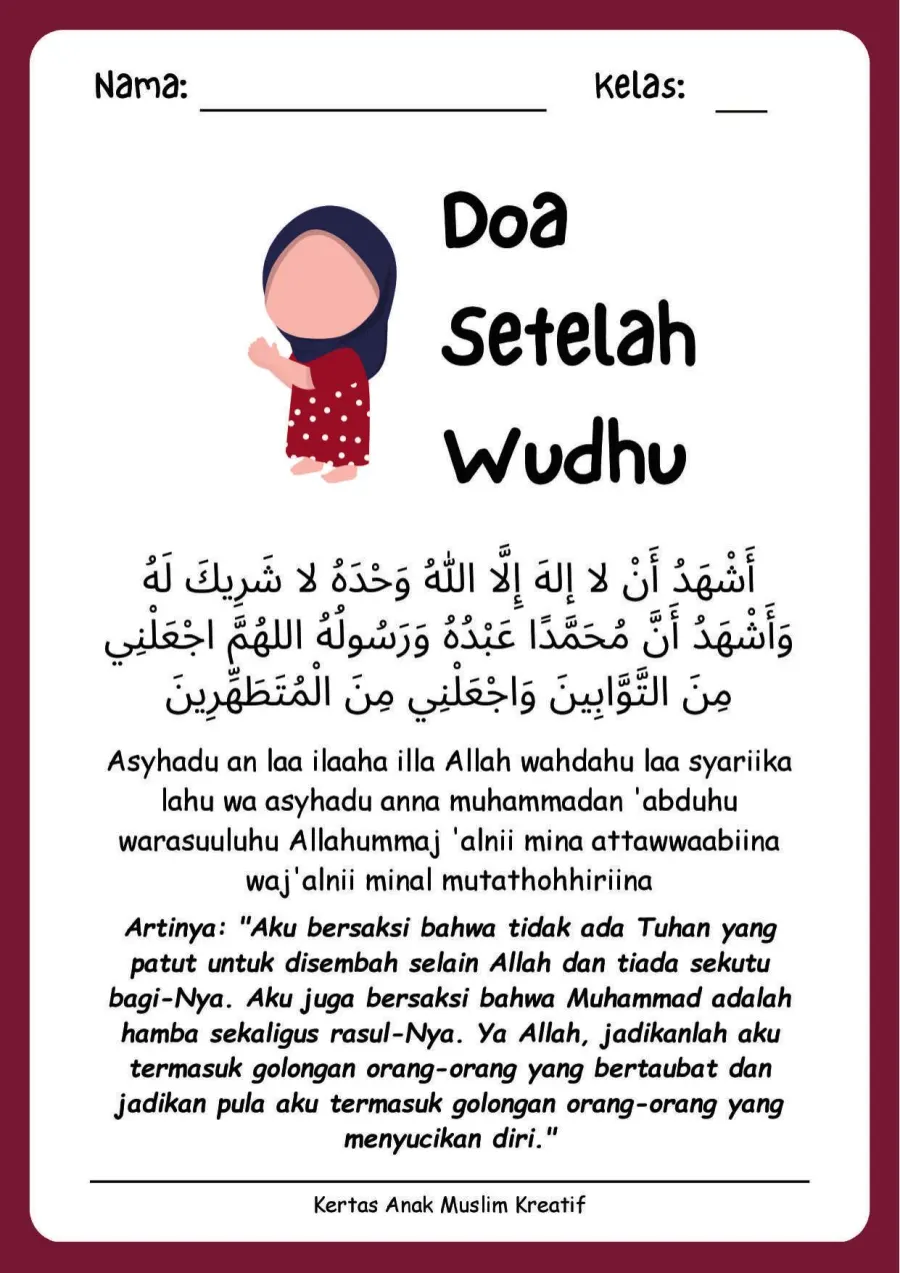 Nama: Kelas:
Doa
Setelah
Wudhu
أَشْهَدُ أَنْ لا إلهَ إِلَّا اللهُ وَحْدَهُ لا شَرِيكَ لَهُ
وَأَشْهَدُ أَنَّ مُحَمَّدًا عَبْدُهُ وَرَسُولُهُ اللهُمَّ اجْعَلْنِي
مِنَ التَّوَّابِينَ وَاجْعَلْنِي مِنَ الْمُتَطَهِّرِينَ
Asyhadu an laa ilaaha illa Allah wahdahu laa syariika
lahu wa asyhadu anna muhammadan 'abduhu
warasuuluhu Allahummaj 'alnii mina attawwaabiina
waj'alnii minal mutathohhiriina
Artinya: "Aku bersaksi bahwa tidak ada Tuhan yang
patut untuk disembah selain Allah dan tiada sekutu
bagi-Nya. Aku juga bersaksi bahwa Muhammad adalah
hamba sekaligus rasul-Nya. Ya Allah, jadikanlah aku
termasuk golongan orang-orang yang bertaubat dan
jadikan pula aku termasuk golongan orang-orang yang
menyucikan diri."
Kertas Anak Muslim Kreatif